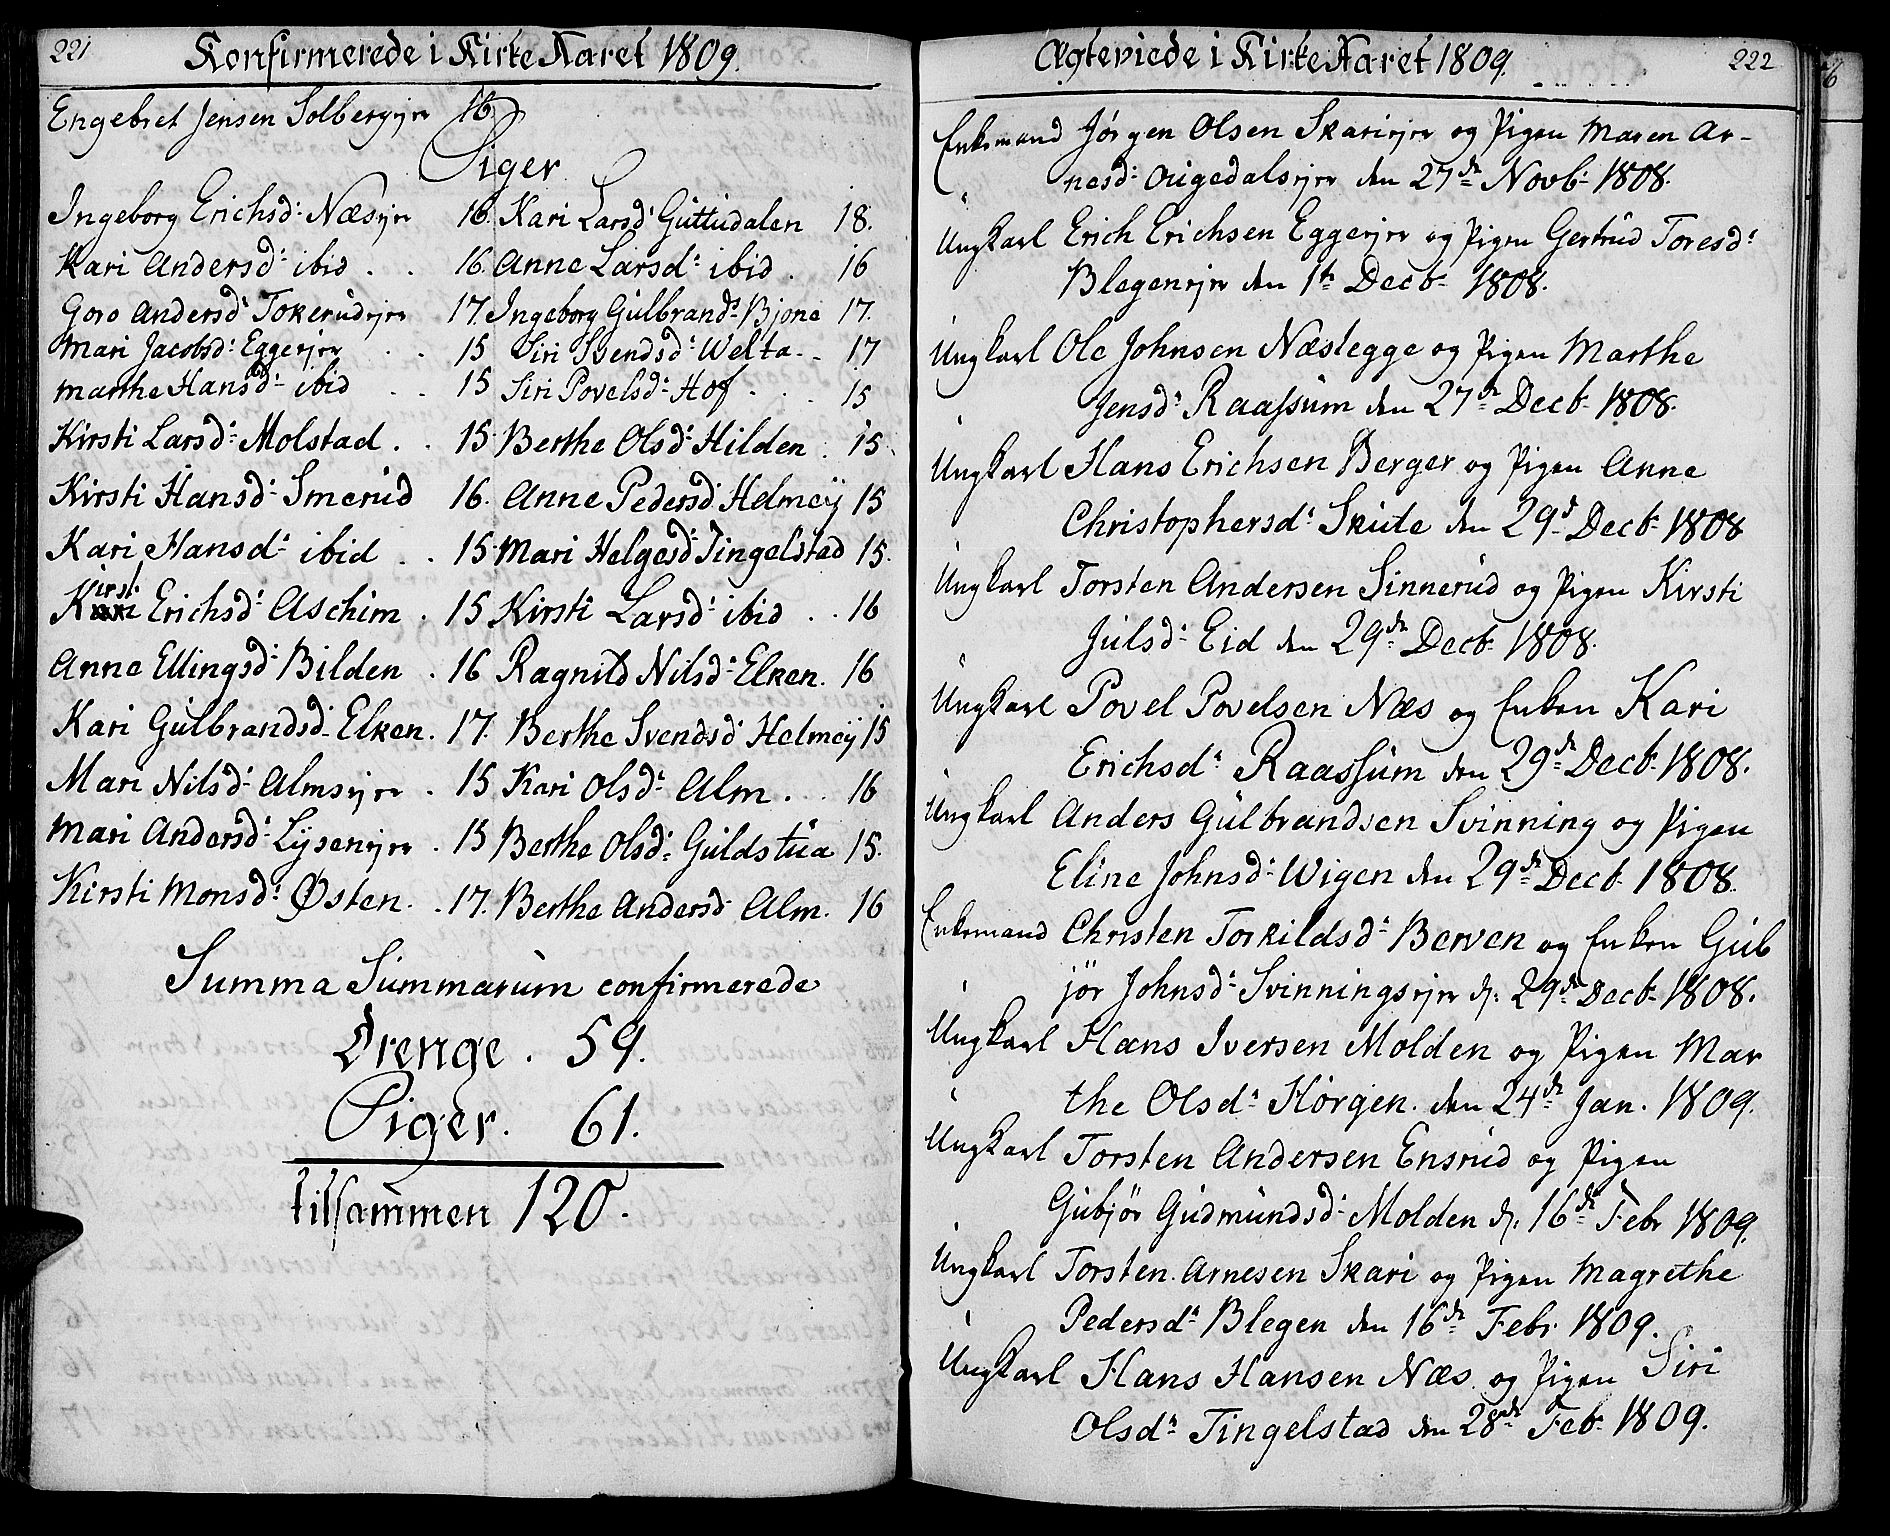 221
Konfirmerede i Kirke Aaret 1809.
Engebret Jensen Solbergejer 16
Piger
Ingeborg Erichsd: Næsejer 16. Kari Larsd: Guttudalen 18.
Kari Andersd: ibid . . 16. Anne Larsd: ibid . 16
Goro Andersd: Tokerudejer 17. Ingeborg Gulbrands: Bjone 17.
Mari Jacobsd: Eggeejer . . 15 Siri Svendsd: Welta . . 17
Marthe Hansd: ibid . . 15 Siri Povelsd: Hof . . . 15
Kirsti Larsd: Molstad . . 15. Berthe Olsd: Hilden . 15.
Kirsti Hansd: Smerud 16. Anne Pedersd: Helmeÿ 15
Kari Hansd: ibid . . 15. Mari Helgesd: Tingelstad 15.
Kirsti Erichsd: Aschim . 15 Kirsti Larsd: ibid . . 16
Anne Ellingsd: Bilden . 16 Ragnild Nilsd: Elken. 16
Kari Gulbrandsd: Elken. 17. Berthe Svendsd: Helmeÿ 15
Mari Nilsd: Almsejer . 15 Kari Olsd: Alm . . . 16
Mari Andersd: Lysenejer . 15 Berthe Olsd: Guldstua 15.
Kirsti Monsd: Østen . . 17. Berthe Andersd: Alm. 16
Summa Summarum confirmerede
Drenge . 59.
Piger. 61.
tilsammen 120.
222
Ægteviede i Kirke Aaret 1809.
Enkemand Jørgen Olsen Skariejer og Pigen Maren Ar-
nesd: Augedalsejer den 27de Novb: 1808.
Ungkarl Erich Erichsen Eggeejer og Pigen Gertrud Toresd:
Blegenejer den 1te Decb: 1808.
Ungkarl Ole Johnsen Næslegge og Pigen Marthe
Jensd: Raassum den 27de Decb: 1808.
Ungkarl Hans Erichsen Berger og Pigen Anne
Christophersd: Skute den 29d Decb: 1808
Ungkarl Torsten Andersen Sinnerud og Pigen Kirsti
Julsd: Eid den 29de Decb: 1808.
Ungkarl Povel Povelsen Næs og Enken Kari
Erichsd: Raassum den 29de Decb: 1808.
Ungkarl Anders Gulbrandsen Svinning og Pigen
Eline Johnsd: Wigen den 29de Decb: 1808.
Enkemand Christen Torkildsd: Berven og Enken Gub
jør Johnsd: Svinningsejer d: 29de Decb: 1808.
Ungkarl Hans Iversen Molden og Pigen Mar
the Olsd: Horgen. den 24de Jan. 1809.
Ungkarl Torsten Andersen Ensrud og Pigen
Gubjør Gudmundsd: Molden d: 16de Febr 1809.
Ungkarl Torsten Arnesen Skari og Pigen Magrethe
Pedersd: Blegen den 16de Febr 1809.
Ungkarl Hans Hansen Næs og Pigen Siri
Olsd: Tingelstad den 28de Feb: 1809.